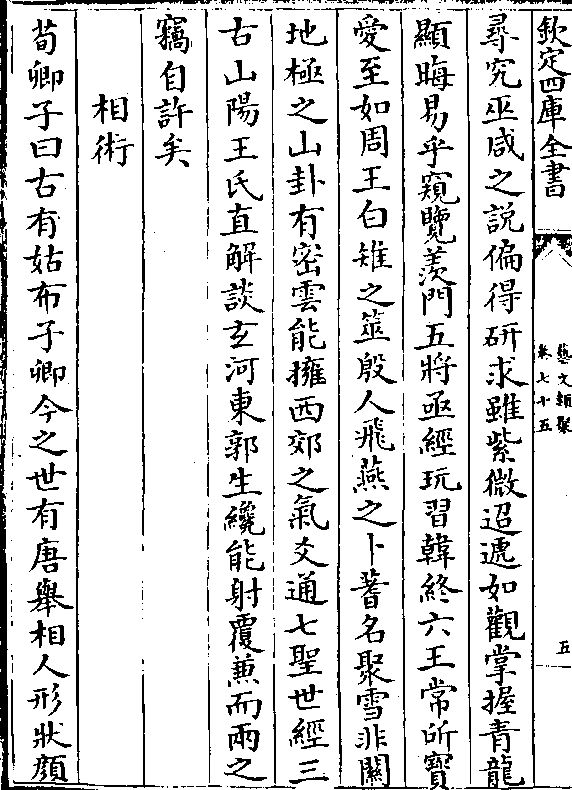 欽定四庫全書
藝文類聚
卷七十五
五
尋究巫咸之說偏得研求雖紫微迢遞如觀掌握青龍
顯晦易乎窺覽羨門五將亟經玩習韓終六王常所寶
愛至如周王白雉之筮殷人飛燕之卜蓍名聚雪非關
地極之山卦有密雲能擁西郊之氣爻通七聖世經三
古山陽王氏直解談玄河東郭生纔能射覆兼而兩之
竊自許矣
相術
荀卿子曰古有姑布子卿今之世有唐舉相人形狀顔